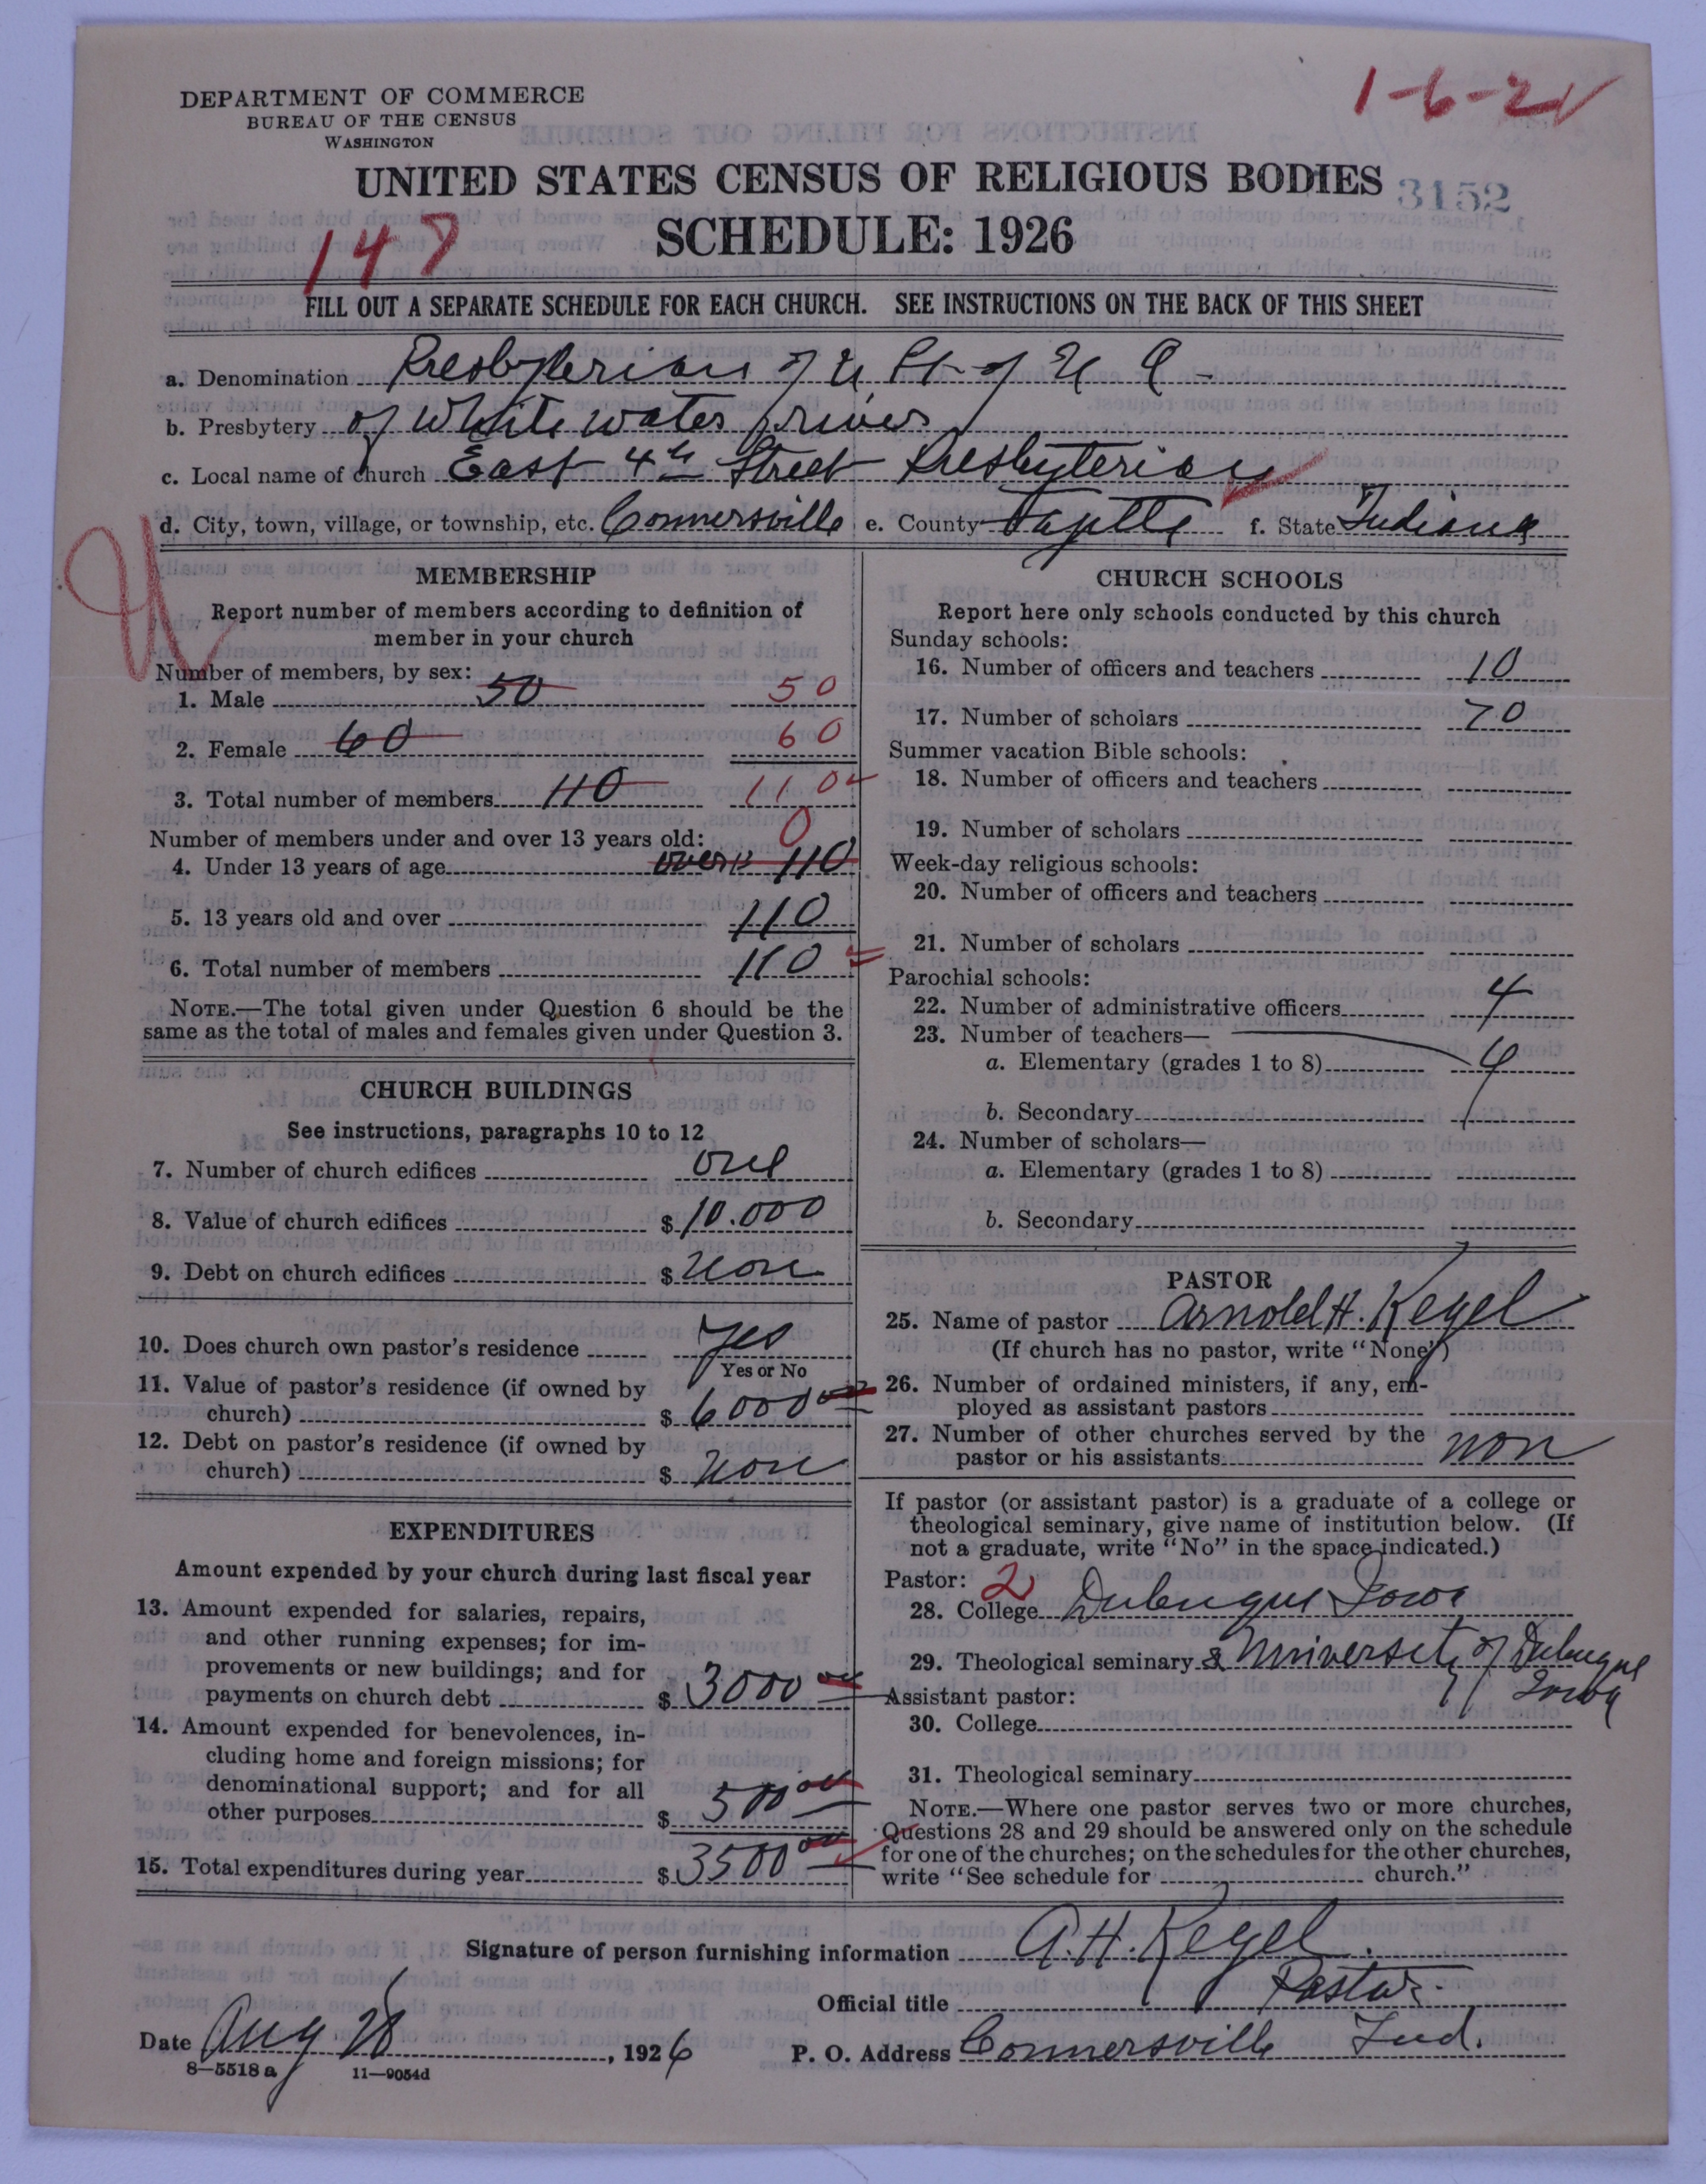 1-6-21
DEPARTMENT OF COMMERCE
BUREAU OF THE CENSUS
WASHINGTON
UNITED STATES CENSUS OF RELIGIOUS BODIES
3152
SCHEDULE: 1926
147
FILL OUT A SEPARATE SCHEDULE FOR EACH CHURCH. SEE INSTRUCTIONS ON THE BACK OF THIS SHEET
a. Denomination Presbyterian of U St. of U A -
b. Presbytery of White water river
c. Local name of church East 4th Street Presbyterian
d. City, town, village, or township, etc. Connersville e. County Fayette f. State Indiana
MEMBERSHIP
Report number of members according to definition of
member in your church
Number of members, by sex:
1. Male 50 50
2. Female 60 60
3. Total number of members 110 110
Number of members under and over 13 years old: 0
4. Under 13 years of age over 13 110
5. 13 years old and over 110
6. Total number of members 110
NOTE.—The total given under Question 6 should be the
same as the total of males and females given under Question 3.
CHURCH BUILDINGS
See instructions, paragraphs 10 to 12
7. Number of church edifices one
8. Value of church edifices $ 10.000
9. Debt on church edifices $ Non
10. Does church own pastor's residence yes
Yes or No
11. Value of pastor's residence (if owned by
church) $ 6000 00
12. Debt on pastor's residence (if owned by
church) $ Non
EXPENDITURES
Amount expended by your church during last fiscal year
13. Amount expended for salaries, repairs,
and other running expenses; for im-
provements or new buildings; and for
payments on church debt $ 3000 00
14. Amount expended for benevolences, in-
cluding home and foreign missions; for
denominational support; and for all
other purposes $ 500 00
15. Total expenditures during year $ 3500 00
CHURCH SCHOOLS
Report here only schools conducted by this church
Sunday schools:
16. Number of officers and teachers 10
17. Number of scholars 70
Summer vacation Bible schools:
18. Number of officers and teachers
19. Number of scholars
Week-day religious schools:
20. Number of officers and teachers
21. Number of scholars
Parochial schools:
22. Number of administrative officers 4
23. Number of teachers—
a. Elementary (grades 1 to 8) 4
b. Secondary
24. Number of scholars—
a. Elementary (grades 1 to 8)
b. Secondary
PASTOR
25. Name of pastor Arnold H. Kegel
(If church has no pastor, write "None")
26. Number of ordained ministers, if any, em-
ployed as assistant pastors
27. Number of other churches served by the
pastor or his assistants non
If pastor (or assistant pastor) is a graduate of a college or
theological seminary, give name of institution below. (If
not a graduate, write "No" in the space indicated.)
Pastor: 2
28. College Dubuque Iowa
29. Theological seminary & University of Dubuque
Iowa
Assistant pastor:
30. College
31. Theological seminary
NOTE.—Where one pastor serves two or more churches,
Questions 28 and 29 should be answered only on the schedule
for one of the churches; on the schedules for the other churches,
write "See schedule for church."
Signature of person furnishing information A. H. Kegel.
Official title Pastor.
Date Aug 28, 1926 P. O. Address Connersville Ind.
8—5518 a 11—9054d